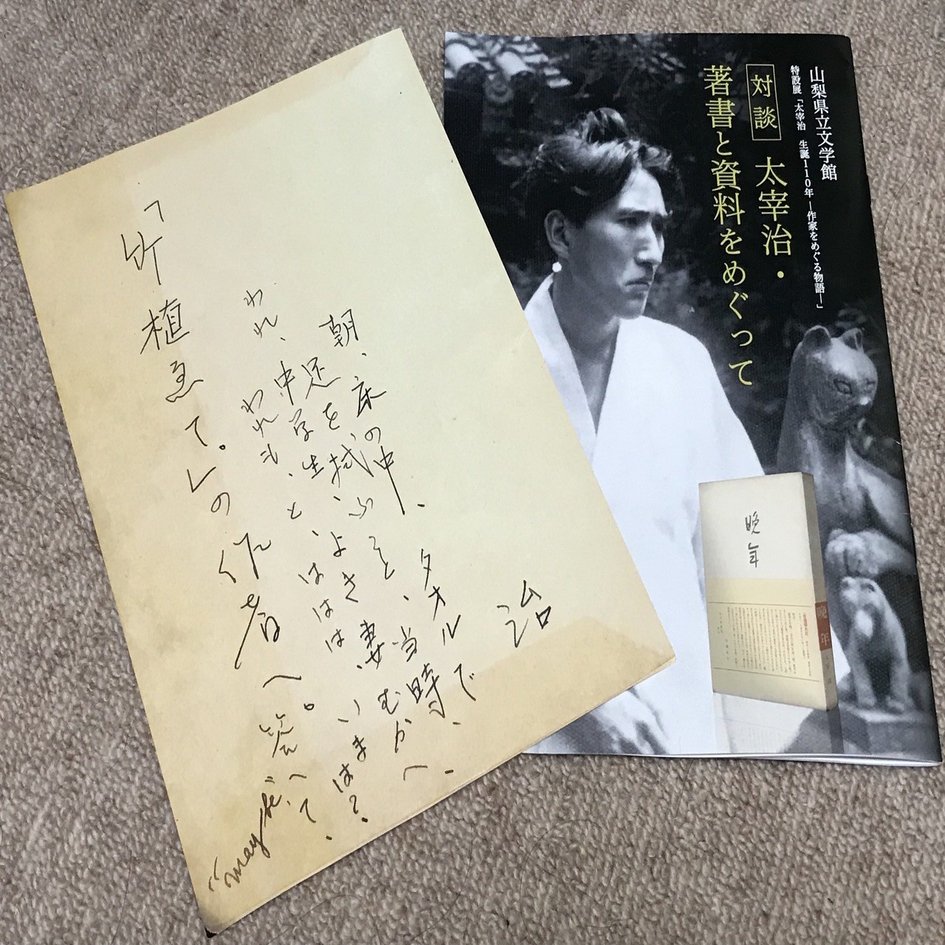 治
朝、床の中、タオルで、
足を拭ふと、当時、
われ、中学生、よき妻、むかへ、
われも、と、ははは、いまは?
「竹植ゑて。」の作者へ。答へて、
山梨県立文学館
特設展「太宰治 生誕110年―作家をめぐる物語―」
対談 太宰治・
著書と資料をめぐって
晩年
晩年